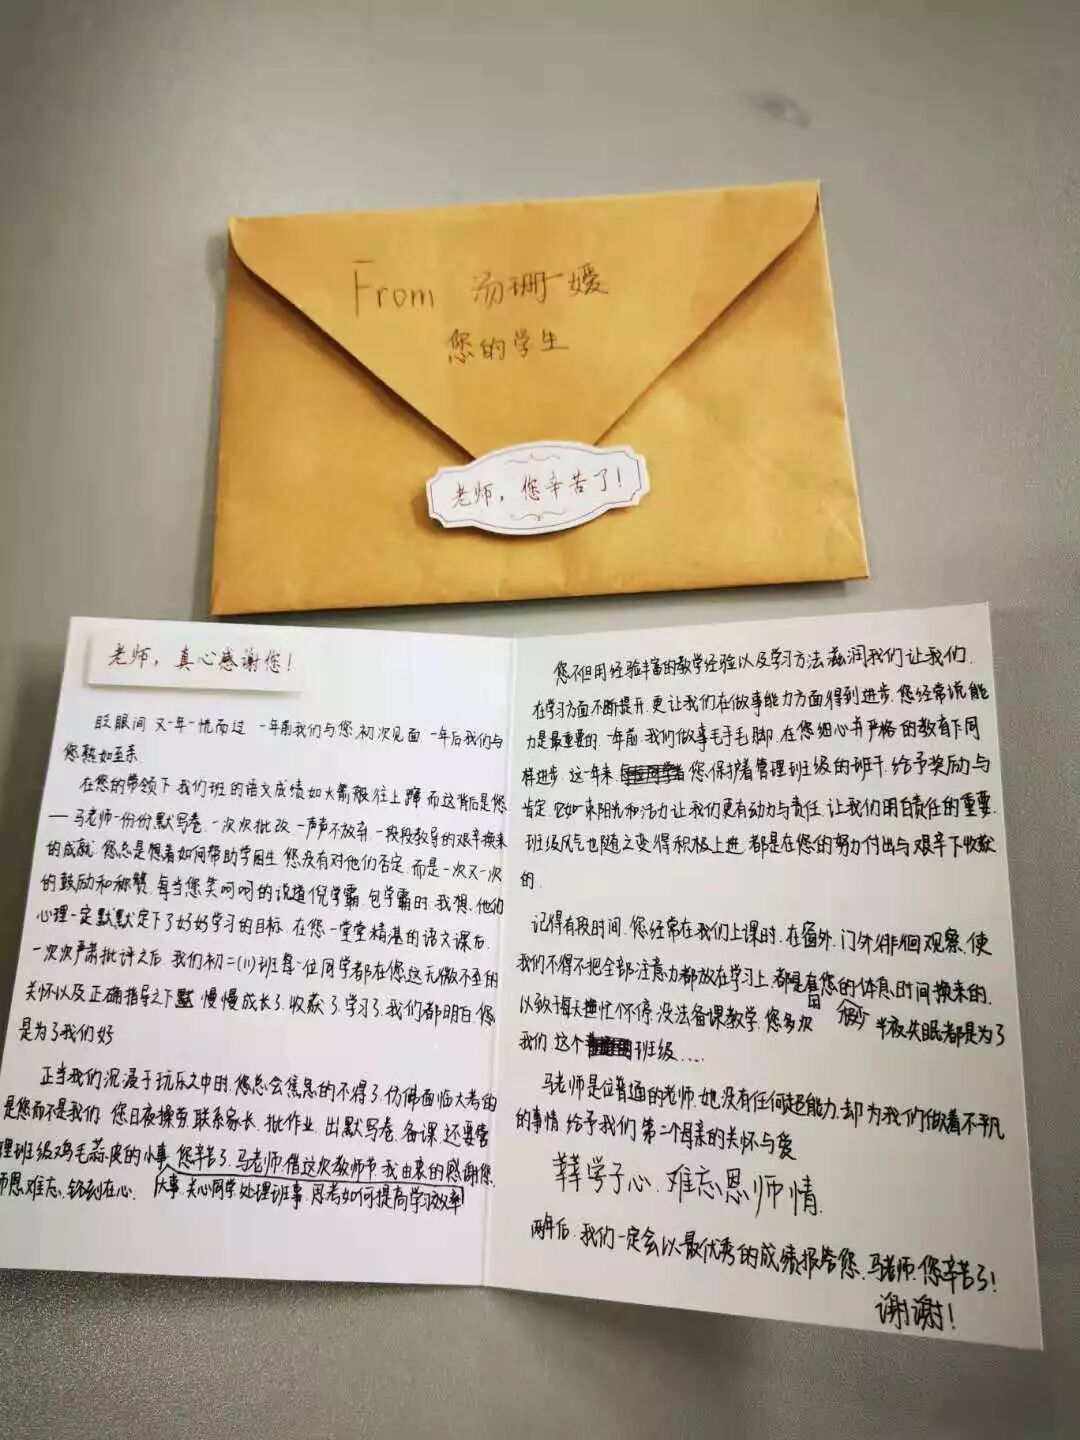 From 汤珊嫒
您的学生
老师，您辛苦了！
老师，真心感谢您！
眨眼间 又一年一慌而过 一年前我们与您初次见面 一年后我们与
您熟如至亲
在您的带领下 我们班的语文成绩如火箭般往上蹿 而这背后是您
——马老师一份份默写卷.一次次批改.一声声不放弃.一段段教导的艰辛换来
的成就.您总是想着如何帮助学困生.您没有对他们否定.而是一次又一次
的鼓励和称赞.每当您笑呵呵的说道倪学霸.包学霸时.我想.他们
心理一定默默定下了好好学习的目标.在您一堂堂精湛的语文课后.
一次次严肃批评之后.我们初二(11)班每一位同学都在您这无微不至的
关怀以及正确指导之下 慢慢成长了.收获了.学习了.我们都明白.您
是为了我们好
正当我们沉浸于玩乐之中时.您总会焦急的不得了.仿佛面临大考的
是您而不是我们.您日夜操劳.联系家长.批作业.出默写卷.备课.还要管
理班级鸡毛蒜皮的小事.您辛苦了.马老师.借这次教师节.我由衷的感谢您.
师恩难忘.铭刻在心. 大事.关心同学.处理班事.思考如何提高学习效率
您不但用经验丰富的教学经验以及学习方法滋润我们让我们.
在学习方面不断提升.更让我们在做事能力方面得到进步.您经常说能
力是最重要的.一年前.我们做事毛手毛脚.在您细心并严格的教育下同
样进步.这一年来 您保护着管理班级的班干.给予奖励与
肯定.它如一束阳光和活力让我们更有动力与责任.让我们明白责任的重要.
班级风气也随之变得积极上进.都是在您的努力付出与艰辛下收获
的.
记得有段时间.您经常在我们上课时.在窗外.门外徘徊观察.使
我们不得不把全部注意力都放在学习上.都是有您的休息时间换来的.
以致于每天连忙个不停.没法备课教学.您多次 半夜失眠都是为了
我们.这个班级....
马老师是位普通的老师.她没有任何超能力.却为我们做着不平凡
的事情.给予我们第二个母亲的关怀与爱
莘莘学子心.难忘恩师情.
两年后.我们一定会以最优秀的成绩报答您.马老师.您辛苦了!
谢谢!